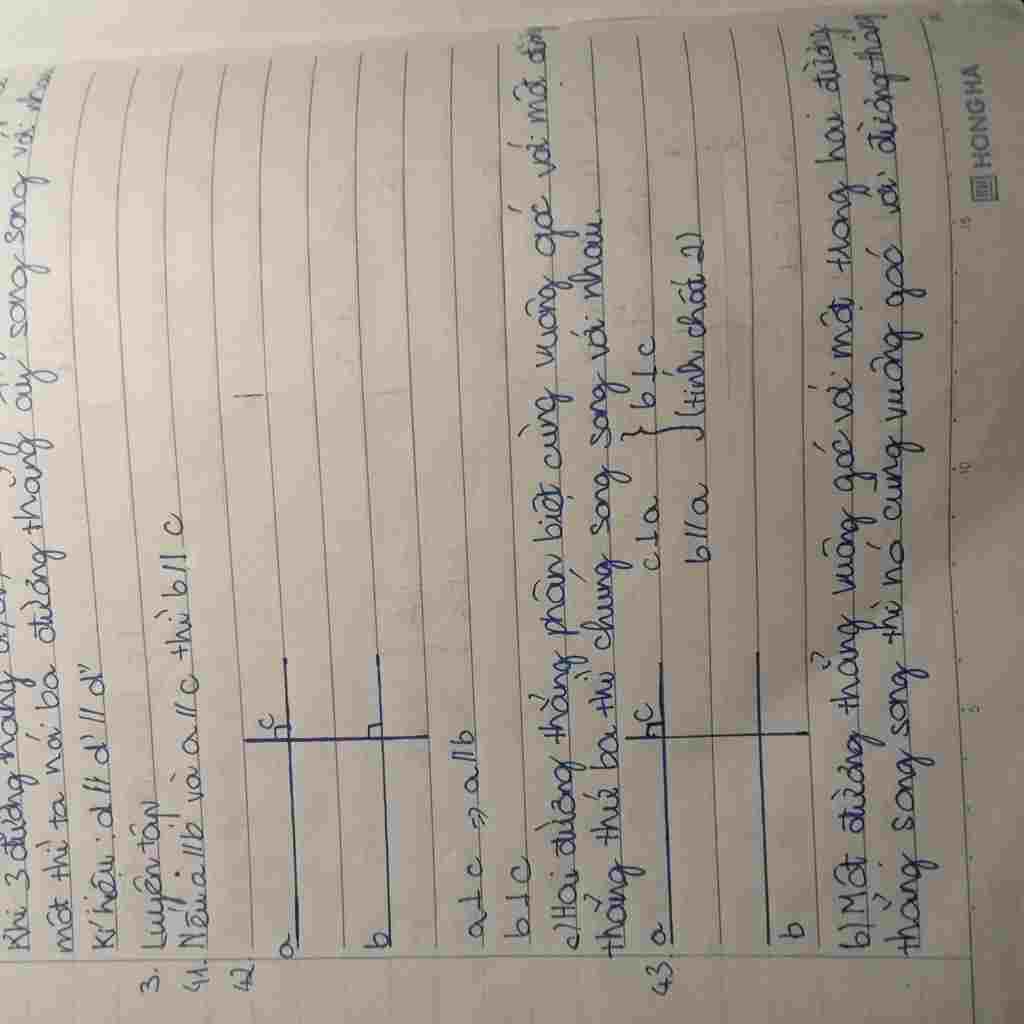 Khi 3 đường thẳng
một thì ta nói ba đường thẳng ấy song song với nhau
Kí hiệu: d // d' // d"
3. Luyện tập
41. Nếu a // b và a // c thì b // c
42.
c
a
b
a ⊥ c ⇒ a // b
b ⊥ c
c) Hai đường thẳng phân biệt cùng vuông góc với một đường
thẳng thứ ba thì chúng song song với nhau.
43. a c c ⊥ a } b ⊥ c
b // a (tính chất 2)
b
b) Một đường thẳng vuông góc với một trong hai đường
thẳng song song thì nó cũng vuông góc với đường thẳng
5 10 15
HONG HA